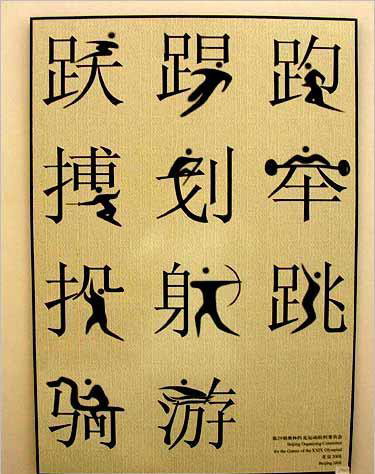 跃 踢 跑
搏 划 举
投 射 跳
骑 游
第29届奥林匹克运动会组织委员会
Beijing Organizing Committee
for the Games of the XXIX Olympiad
北京2008
Beijing 2008